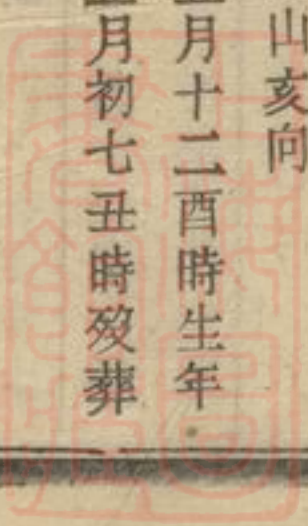 山亥向
月十二酉時生年
月初七丑時歿葬